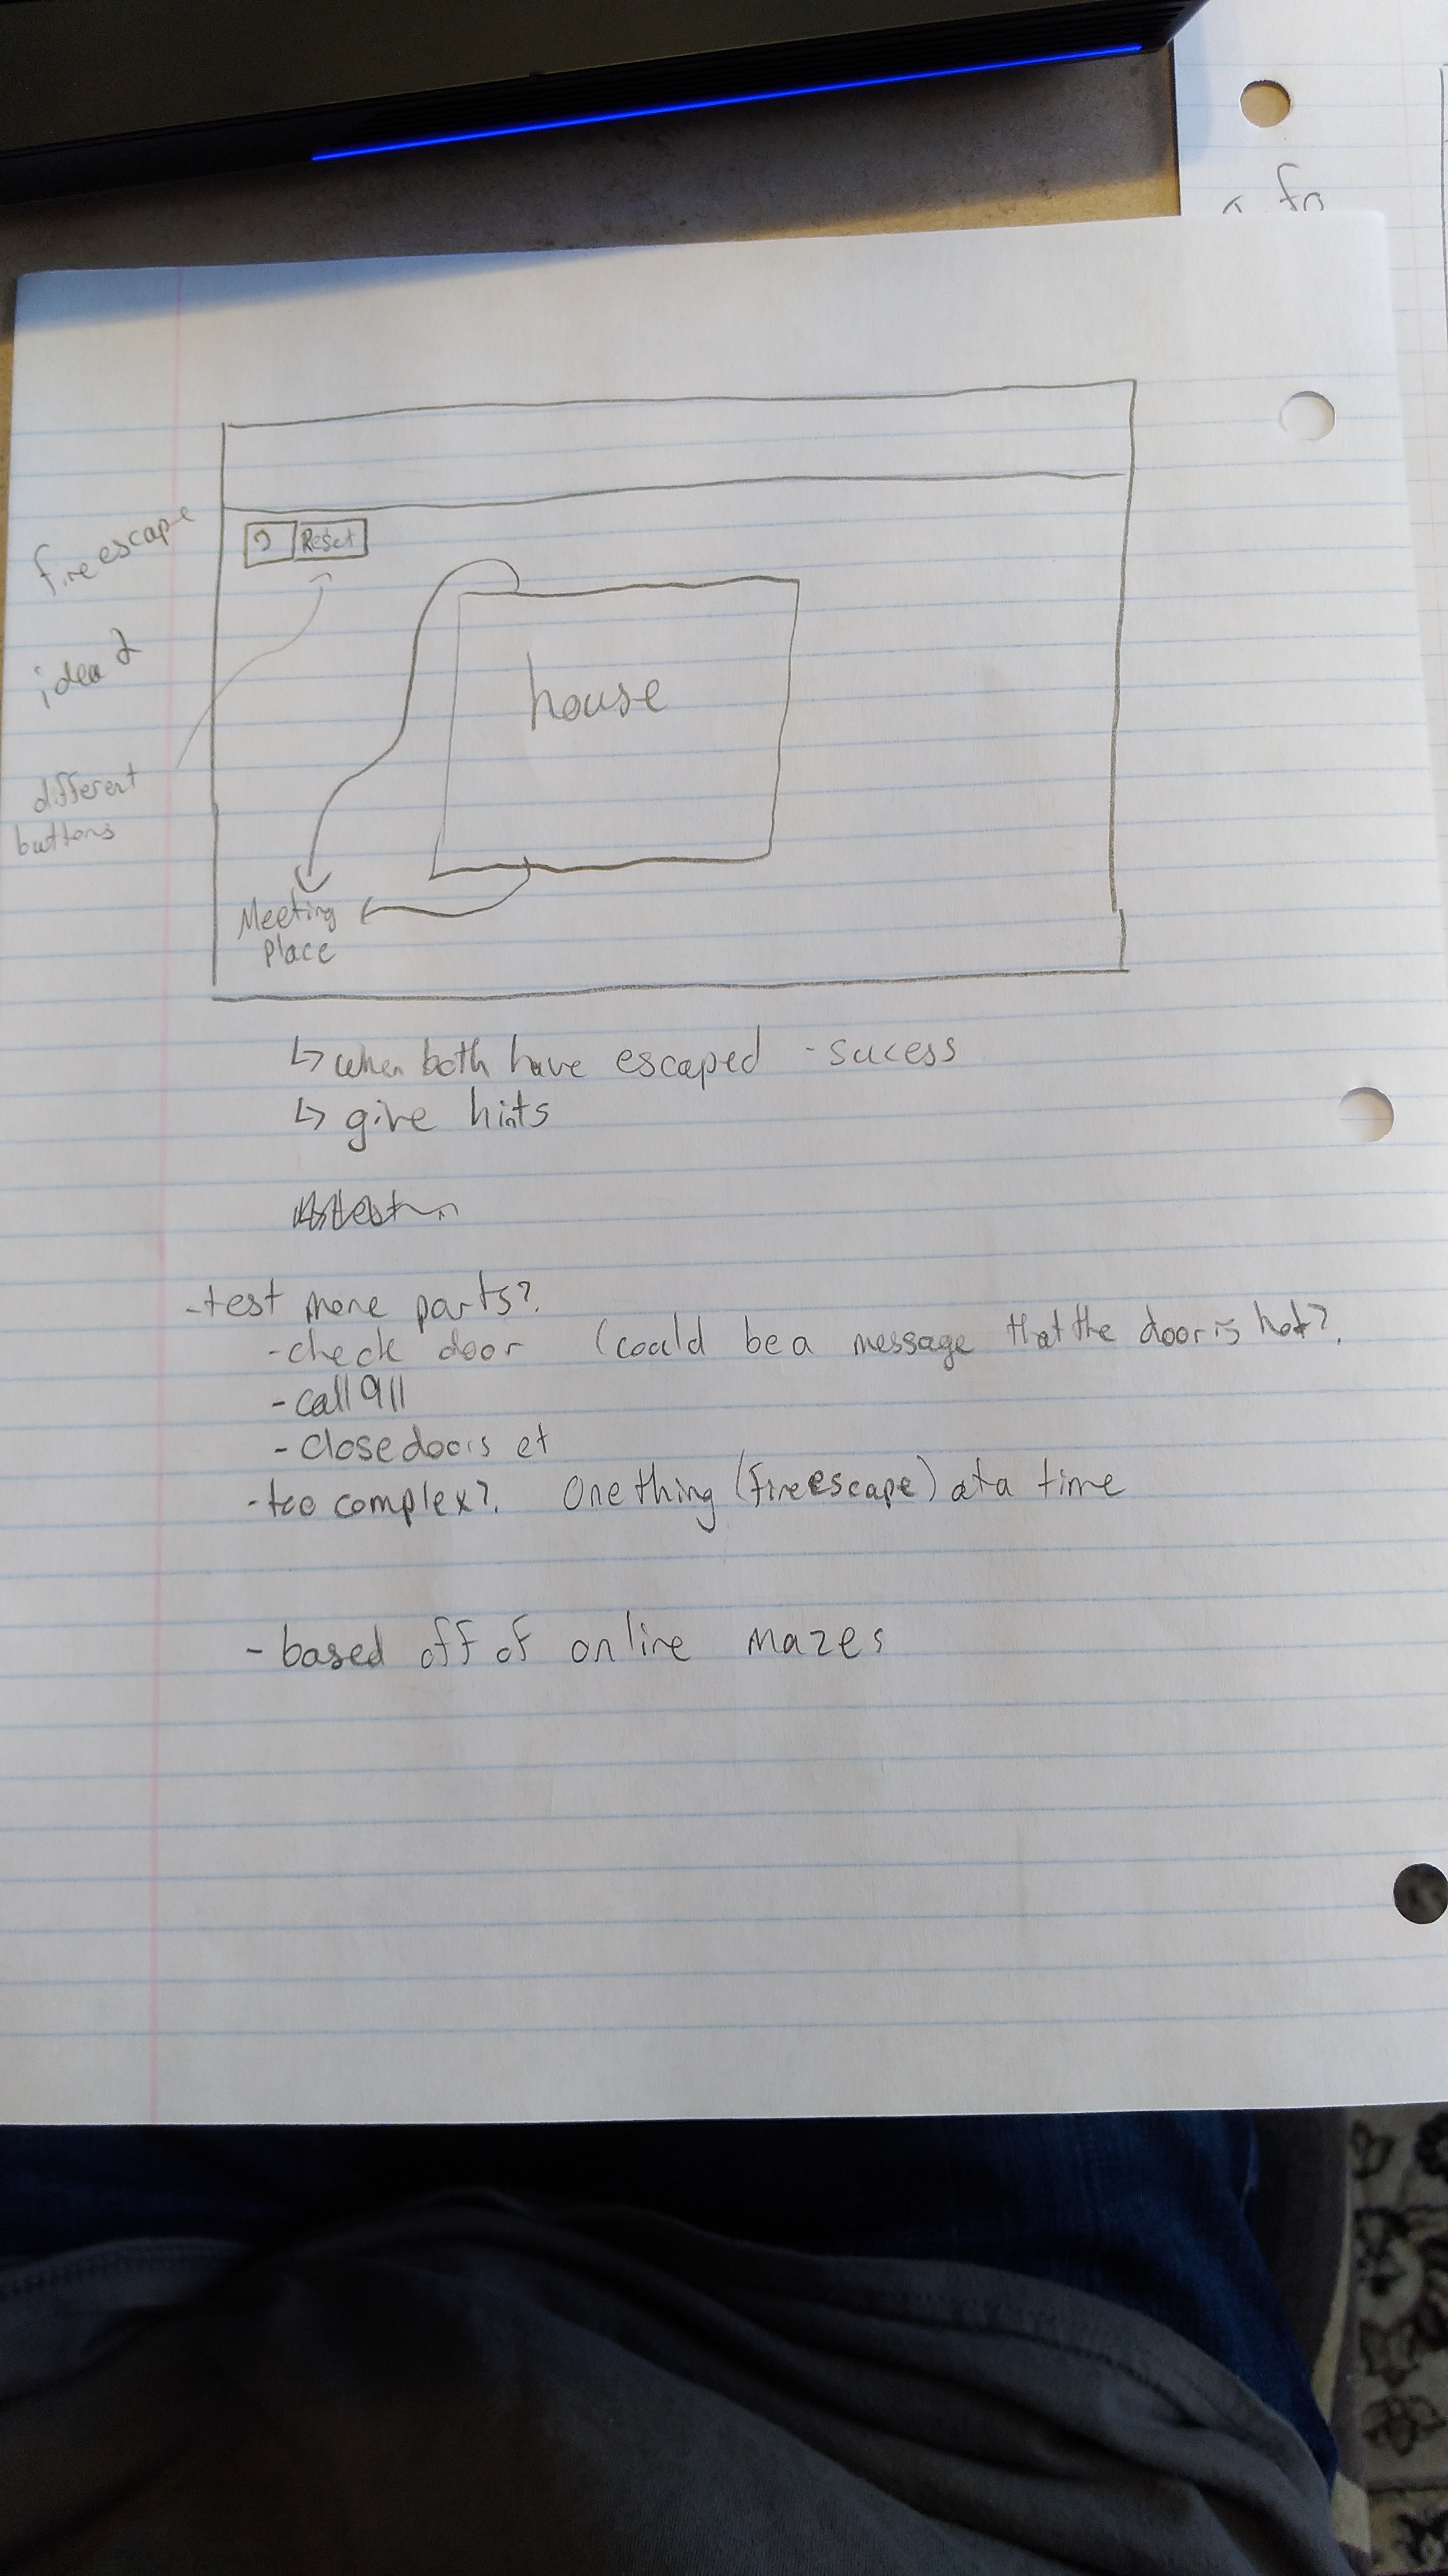 fire escape
idea 2
different
buttons
Reset
house
Meeting
Place
↳ when both have escaped - sucess
↳ give hints
- test more parts?
- check door (could be a message that the door is hot?
- call 911
- close doors et
- too complex? One thing (fire escape) at a time
- based off of online mazes